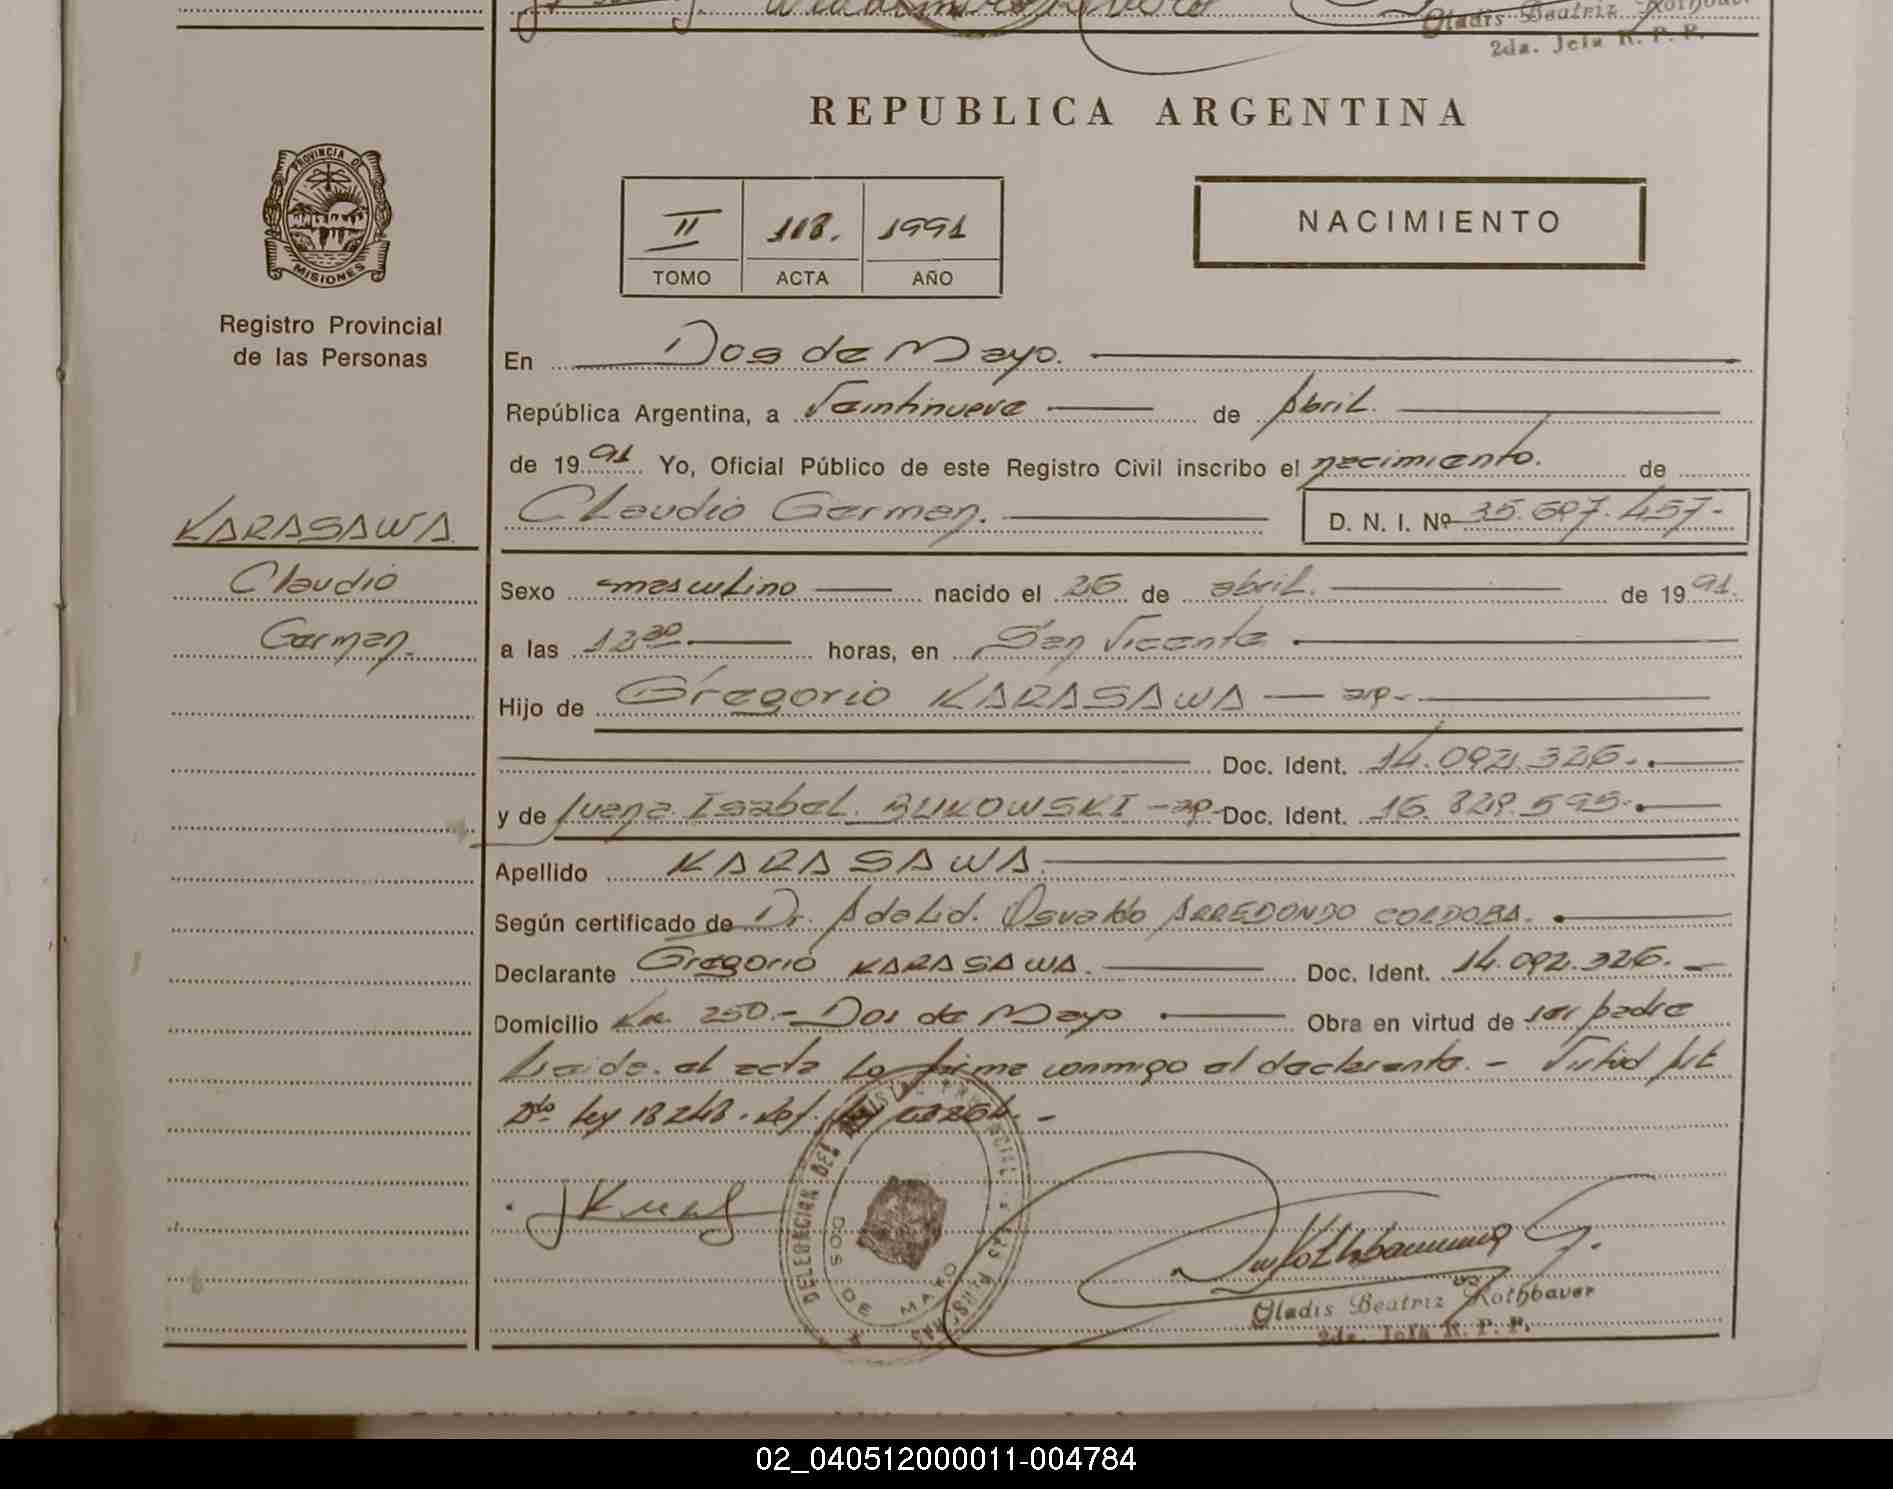 Gladis Beatriz Rothbauer
2da. Jefa R. P. P.
REPUBLICA ARGENTINA
PROVINCIA DE
MISIONES
Registro Provincial
de las Personas
II 118. 1991
TOMO ACTA AÑO
NACIMIENTO
En Dos de Mayo.
República Argentina, a Veintinueve de Abril.
de 1991 Yo, Oficial Público de este Registro Civil inscribo el nacimiento. de
KARASAWA
Claudio
German.
Claudio German. D. N. I. Nº 35.697.457-
Sexo masculino nacido el 26 de abril. de 1991.
a las 12 30 horas, en San Vicente
Hijo de Gregorio KARASAWA — ap-
Doc. Ident. 14.092.326.
y de Juana Isabel BUKOWSKI - ap- Doc. Ident. 16.829.595-
Apellido KARASAWA.
Según certificado de Dr. Adalid. Osvaldo ARREDONDO CORDOBA.
Declarante Gregorio KARASAWA. Doc. Ident. 14.092.326.
Domicilio Km. 250.- Dos de Mayo Obra en virtud de ser padre
Leida el acta la firma conmigo el declarante. - Virtud Art
2do Ley 18248.
DELEGACION DEL REGISTRO PROVINCIAL DE LAS PERSONAS
DOS DE MAYO
Gladis Beatriz Rothbauer
2da. Jefa R. P. P.
02_040512000011-004784